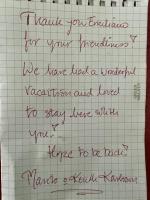 Thank you Emiliano
for your friendliness
We have had a wonderful
vacation and loved
to stay here with
you!
Hope to be back!